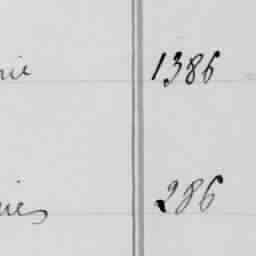 nie 1386
nies 286